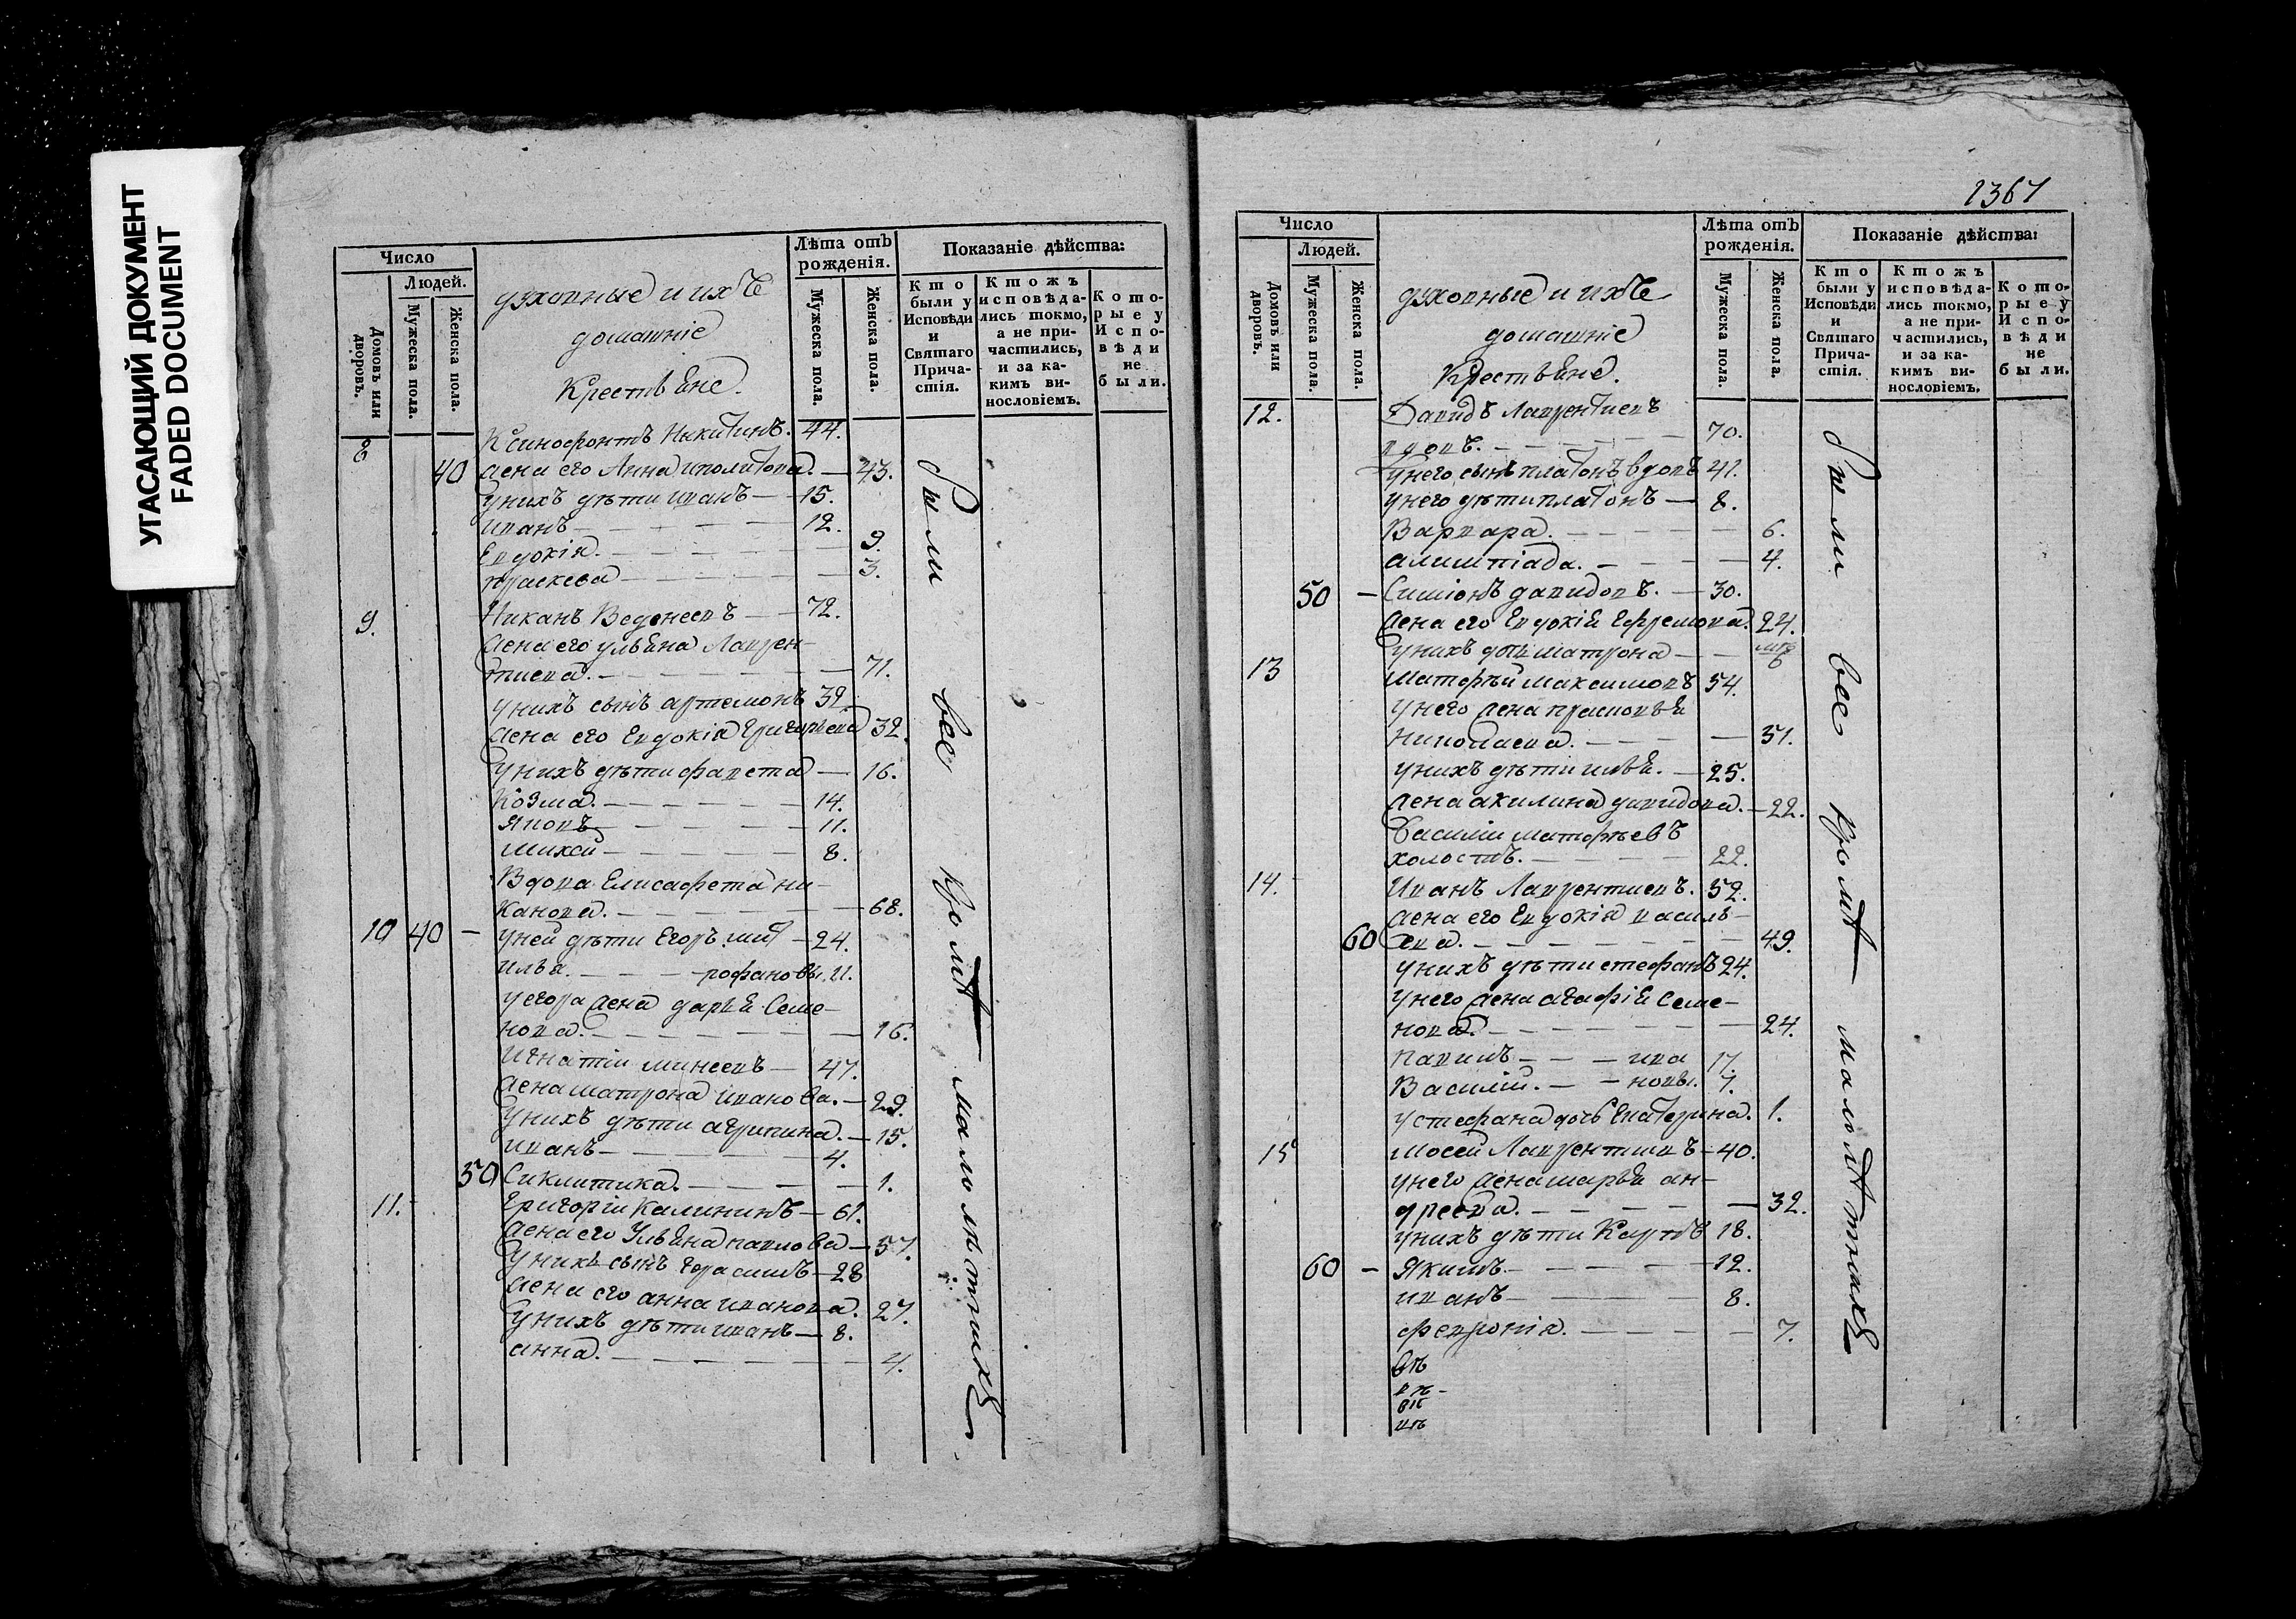 УГАСАЮЩИЙ ДОКУМЕНТ
FADED DOCUMENT
Число
Людей.
Домовъ или дворовъ.
Мужеска пола.
Женска пола.
духовные и ихъ
домашніе
Крестьяне.
Лѣта отъ рожденія.
Мужеска пола.
Женска пола.
Показаніе дѣйства:
Кто были у Исповѣди и Святаго Причастія.
Ктожъ исповѣдались токмо, а не причастились, и за какимъ винословіемъ.
Которые у Исповѣди не были.
8 Ксинофонтъ Никитинъ. 44.
40 жена его Анна иполитова. — 43.
у нихъ дѣти иванъ — 15.
иванъ — 12.
Евдокія. — 9.
праскева — 3.
9. Никанъ Веденеевъ — 72.
жена его ульяна Лаврен-
тиева. — 71.
у нихъ сынъ артемонъ 32
жена его Евдокія Григорьева 32.
у нихъ дѣти фавста — 16.
Козма. — 14.
Яковъ — 11.
михей — 8.
Вдова Елисафета ни-
канова. — 68.
10 40 — у ней дѣти Егоръ мит — 24.
илья. — рофановы. 21.
у егора жена дарья Семе-
нова. — 16.
Игнатіи минеевъ — 47.
жена матрона иванова. — 29.
у нихъ дѣти агрипина. — 15.
иванъ — 4.
50 Сиклитика. — 1.
11. Григоріи Калининъ — 61.
жена его Ульяна павлова — 57.
у нихъ сынъ Герасимъ — 28
жена его анна иванова. 27.
у нихъ дѣти иванъ — 8.
анна. — 4.
были все кромѣ малолѣтнихъ
1367
Число
Людей.
Домовъ или дворовъ.
Мужеска пола.
Женска пола.
духовные и ихъ
домашніе
Крестьяне.
Лѣта отъ рожденія.
Мужеска пола.
Женска пола.
Показаніе дѣйства:
Кто были у Исповѣди и Святаго Причастія.
Ктожъ исповѣдались токмо, а не причастились, и за какимъ винословіемъ.
Которые у Исповѣди не были.
12. Давидъ Лаврентиевъ
вдовъ. — 70.
у него сынъ платонъ вдовъ 41.
у него дѣти платонъ — 8.
Варвара. — 6.
алимпіада. — 4.
50 — Симіонъ давидовъ. — 30.
жена его Евдокія Ефремова. 24.
у нихъ дочь матрона —
13 матфѣй максимовъ 54.
у него жена прасковья
николаева. — 51.
у нихъ дѣти илья. — 25.
жена акилина давидова. — 22.
Василіи матфѣевъ
холостъ. — 22.
14. Иванъ Лаврентиевъ. 52.
жена его Евдокія василь-
60 ева. — 49.
у нихъ дѣти стефанъ 24.
у него жена агафія Семе-
нова. — 24.
павилъ — ива 17.
Василій. — новы. 7.
у стефана дочь Екатерина. 1.
15 мосей Лаврентиевъ — 40.
у него жена марья ан-
дреева. — 32.
у нихъ дѣти Карпъ 18.
60 — Якимъ. — 12.
иванъ — 8.
февронія. — 7.
были все кромѣ малолѣтнихъ